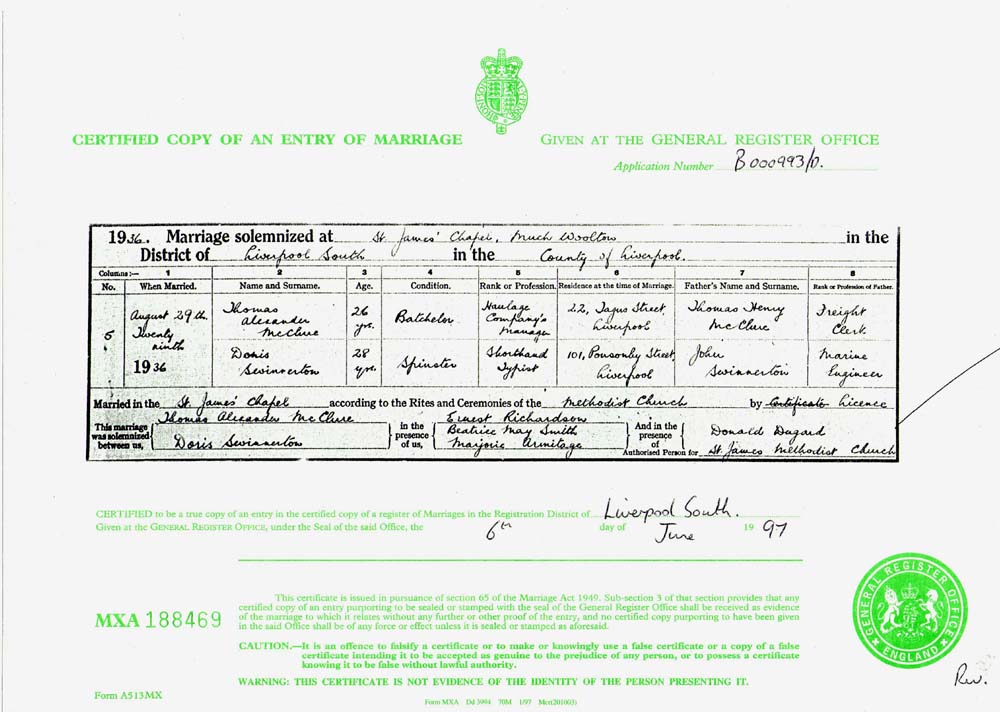 CERTIFIED COPY OF AN ENTRY OF MARRIAGE
GIVEN AT THE GENERAL REGISTER OFFICE
Application Number B000993/D.
1936. Marriage solemnized at St. James' Chapel, Much Woolton in the
District of Liverpool South in the County of Liverpool.
Columns :— 1 2 3 4 5 6 7 8
No. When Married. Name and Surname. Age. Condition. Rank or Profession. Residence at the time of Marriage. Father's Name and Surname. Rank or Profession of Father.
5 August 29th Twenty ninth 1936
Thomas Alexander McClure 26 yrs. Batchelor Haulage Company's Manager 22, Tagus Street, Liverpool Thomas Henry McClure Freight Clerk
Doris Swinnerton 28 yrs. Spinster Shorthand Typist 101, Ponsonby Street, Liverpool John Swinnerton Marine Engineer
Married in the St. James' Chapel according to the Rites and Ceremonies of the Methodist Church by Certificate Licence
This marriage was solemnized between us, Thomas Alexander McClure Doris Swinnerton
in the presence of us, Ernest Richardson Beatrice May Smith Marjorie Armitage
And in the presence of Donald Dagard
Authorised Person for St James Methodist Church
CERTIFIED to be a true copy of an entry in the certified copy of a register of Marriages in the Registration District of Liverpool South.
Given at the GENERAL REGISTER OFFICE, under the Seal of the said Office, the 6th day of June 1997
MXA 188469
This certificate is issued in pursuance of section 65 of the Marriage Act 1949. Sub-section 3 of that section provides that any
certified copy of an entry purporting to be sealed or stamped with the seal of the General Register Office shall be received as evidence
of the marriage to which it relates without any further or other proof of the entry, and no certified copy purporting to have been given
in the said Office shall be of any force or effect unless it is sealed or stamped as aforesaid.
CAUTION.—It is an offence to falsify a certificate or to make or knowingly use a false certificate or a copy of a false
certificate intending it to be accepted as genuine to the prejudice of any person, or to possess a certificate
knowing it to be false without lawful authority.
WARNING: THIS CERTIFICATE IS NOT EVIDENCE OF THE IDENTITY OF THE PERSON PRESENTING IT.
GENERAL REGISTER OFFICE
ENGLAND
Rw.
Form A513MX
Form MXA Dd 3994 70M 1/97 Mcr(201003)